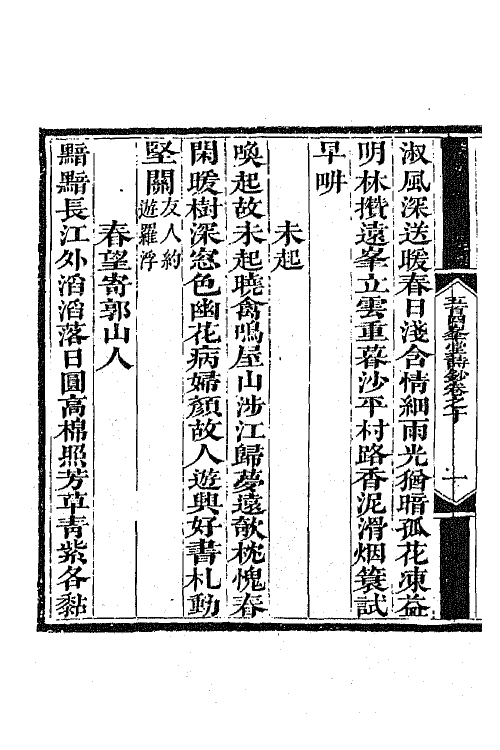 淑風深送暖春日淺含情細雨光猶暗孤花凍益
明林攢遠峯立雲重暮沙平村路香泥滑烟簑試
早畊
未起
喚起故未起曉禽鳴屋山涉江歸夢遠欹枕愧春
閑暖樹深窓色幽花病婦顏故人遊興好書札動
堅關友人約遊羅浮
春望寄郭山人
黯黯長江外滔滔落日圓高棉照芳草靑紫各黏
峯草堂詩鈔卷之下
一